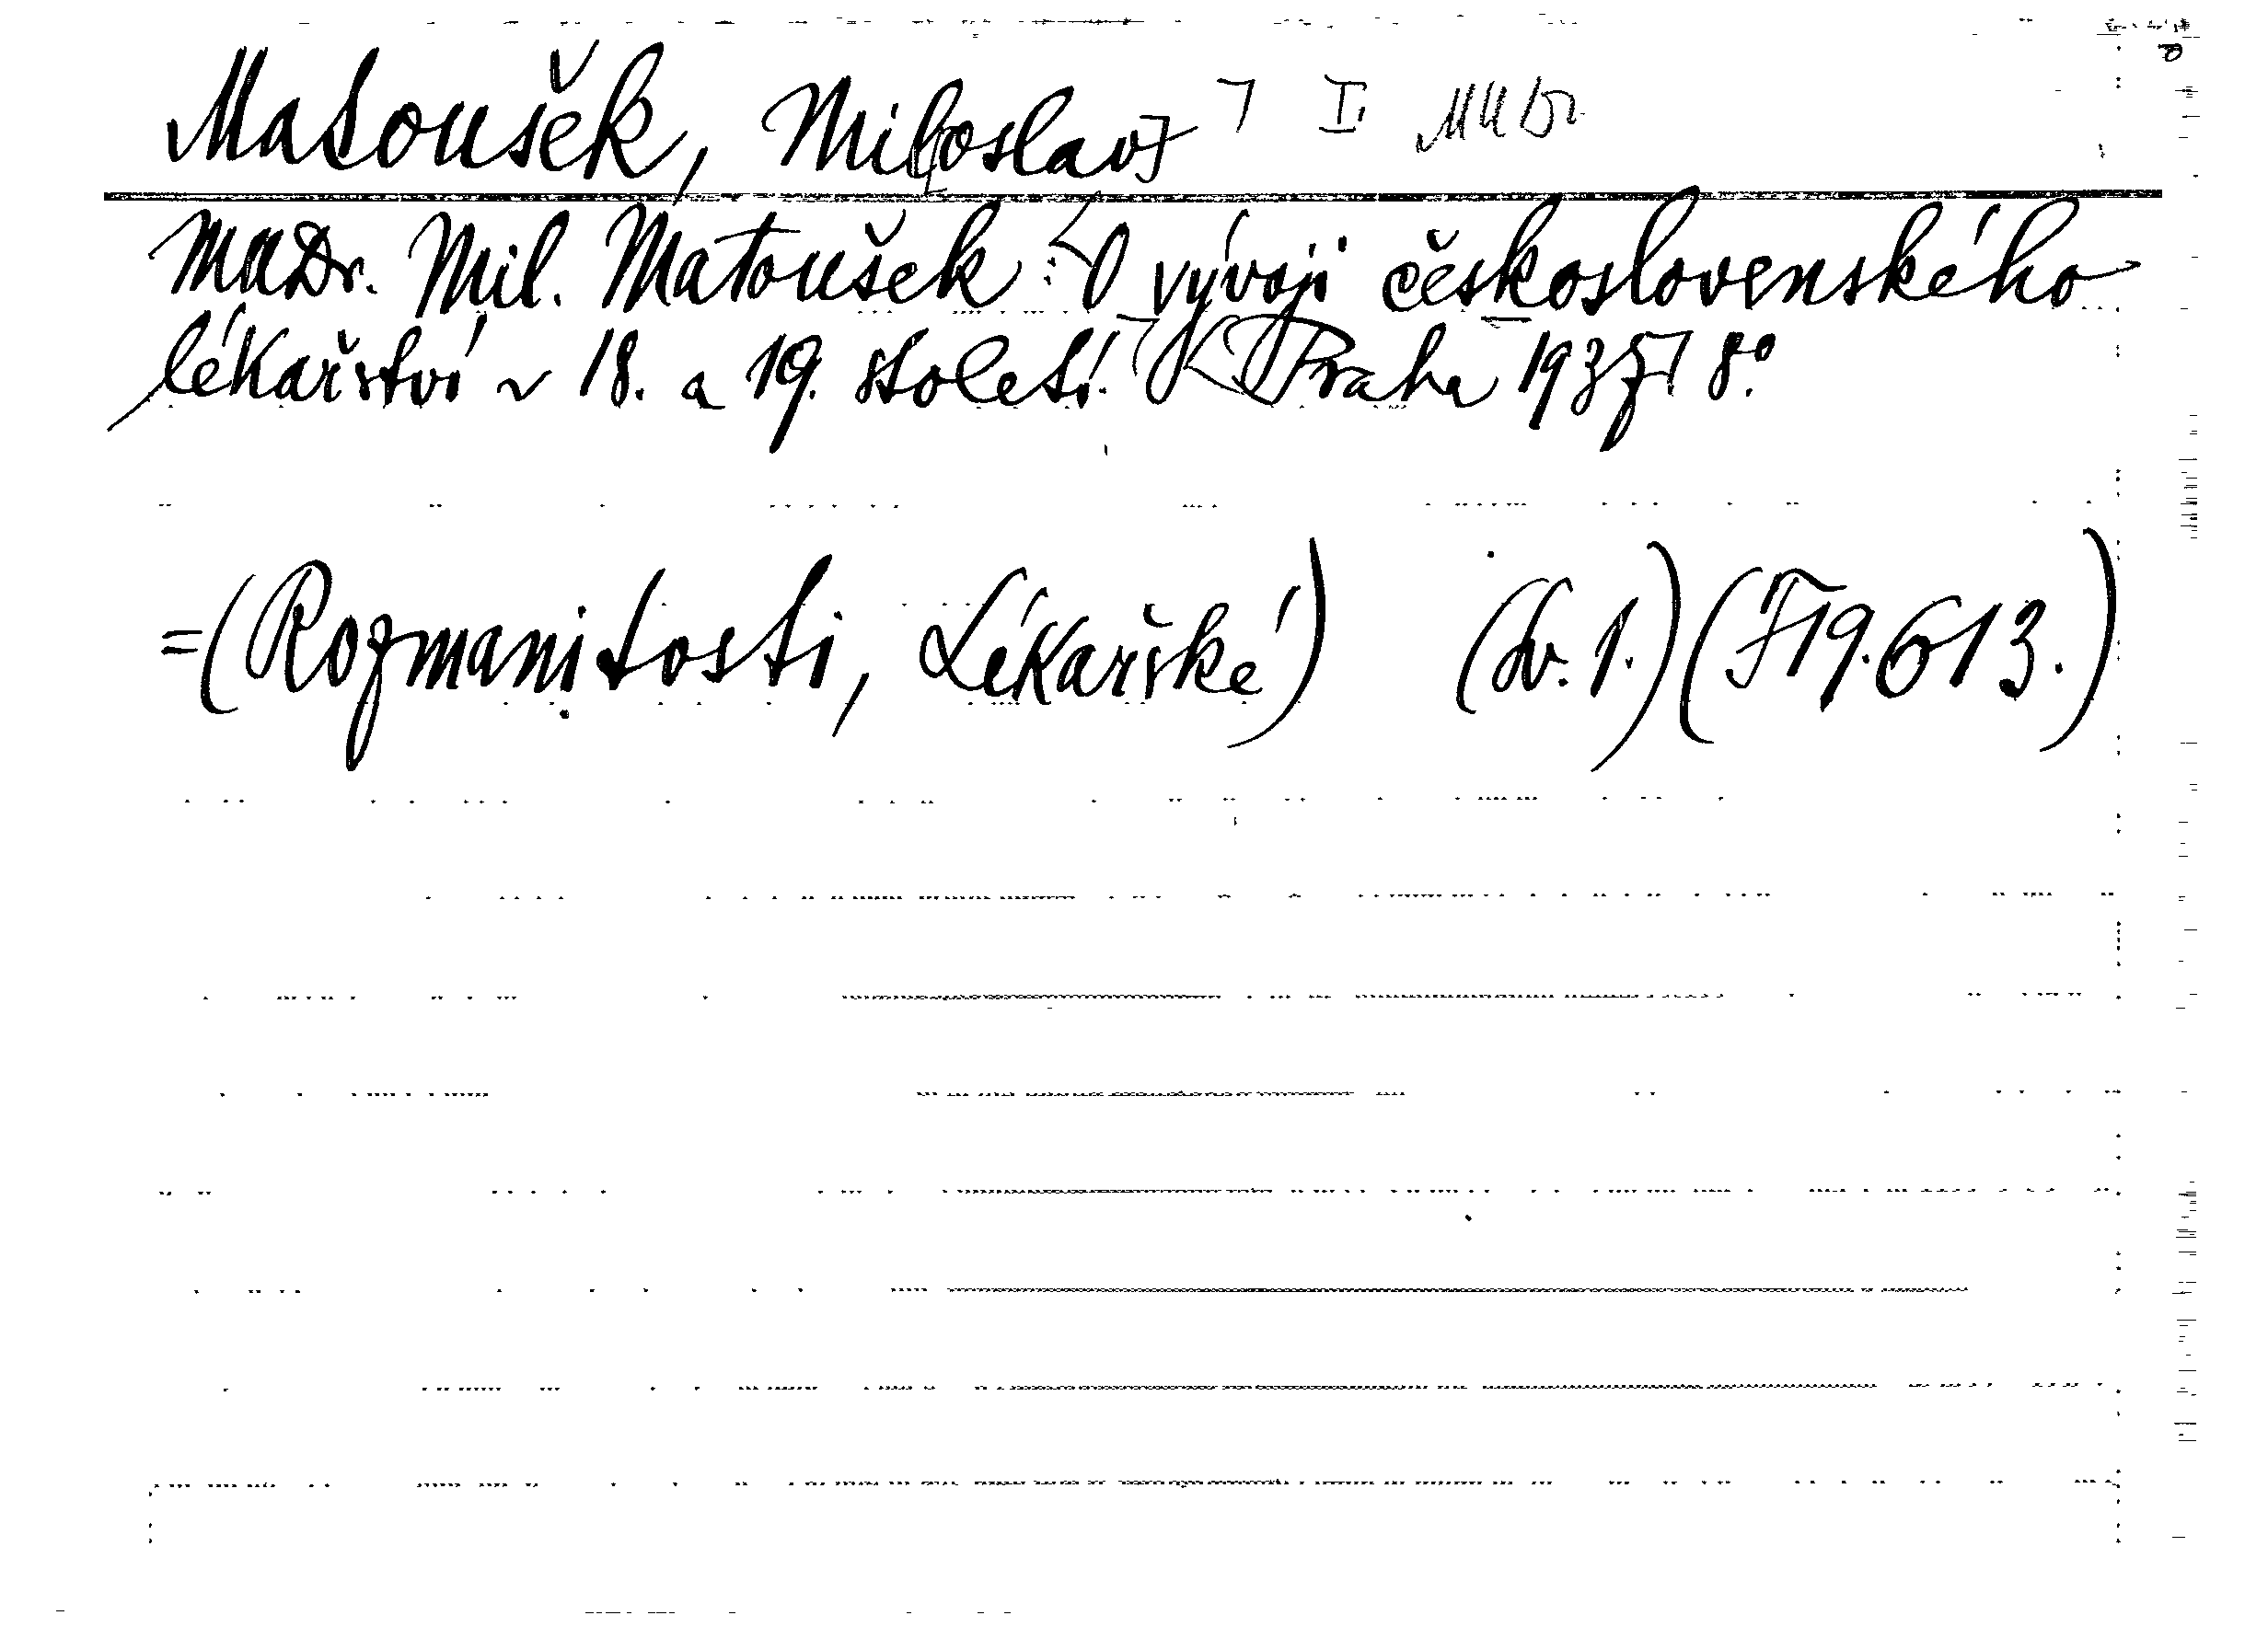 Matoušek, Mil[oslav] ⁊ I. MUDr.
MUDr. Mil. Matoušek: O vývoji československého
lékařství v 18. a 19. století. Praha 1937 8.º
=(Rozmanitosti, Lékařské) (Sv. 1.) (F 19.613.)